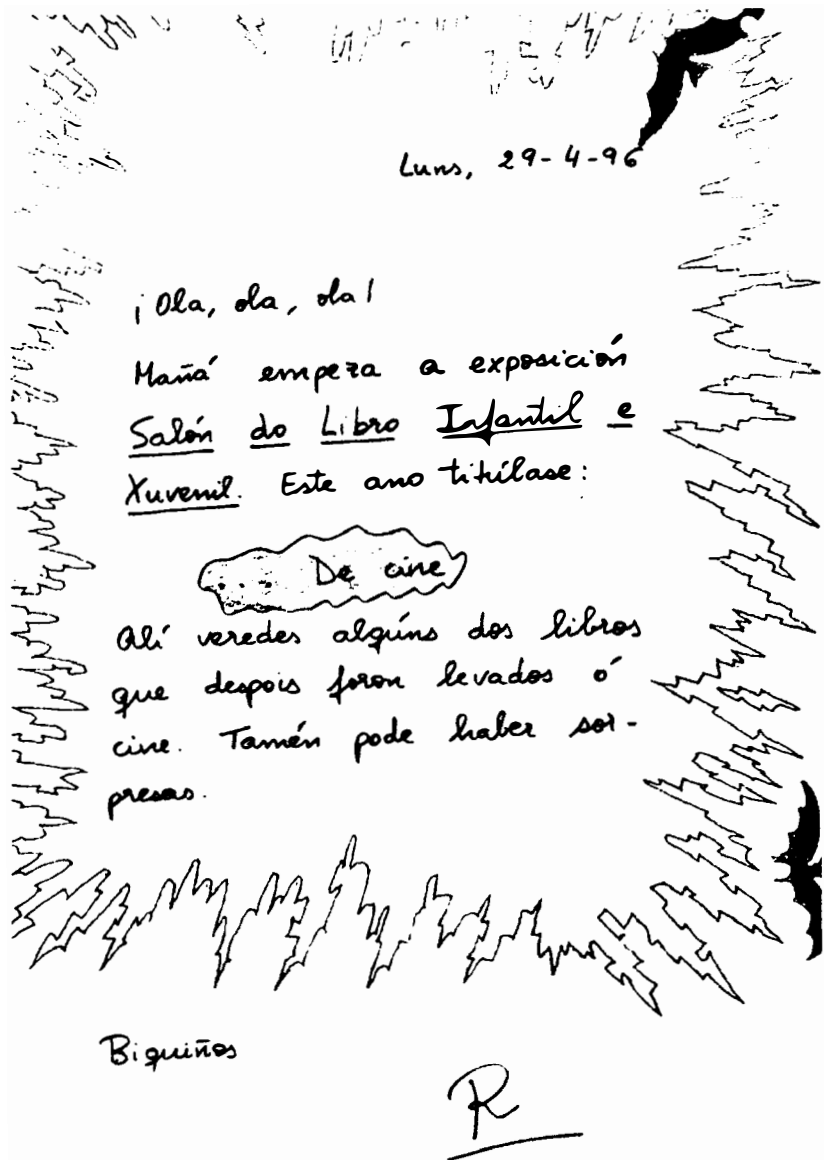 Luns, 29-4-96
¡Ola, ola, ola!
Mañá empeza a exposición
Salón do Libro Infantil e
Xuvenil. Este ano titúlase:
... De cine
Alí veredes algúns dos libros
que despois foron levados ó
cine. Tamén pode haber sor-
presas.
Biquiños
R